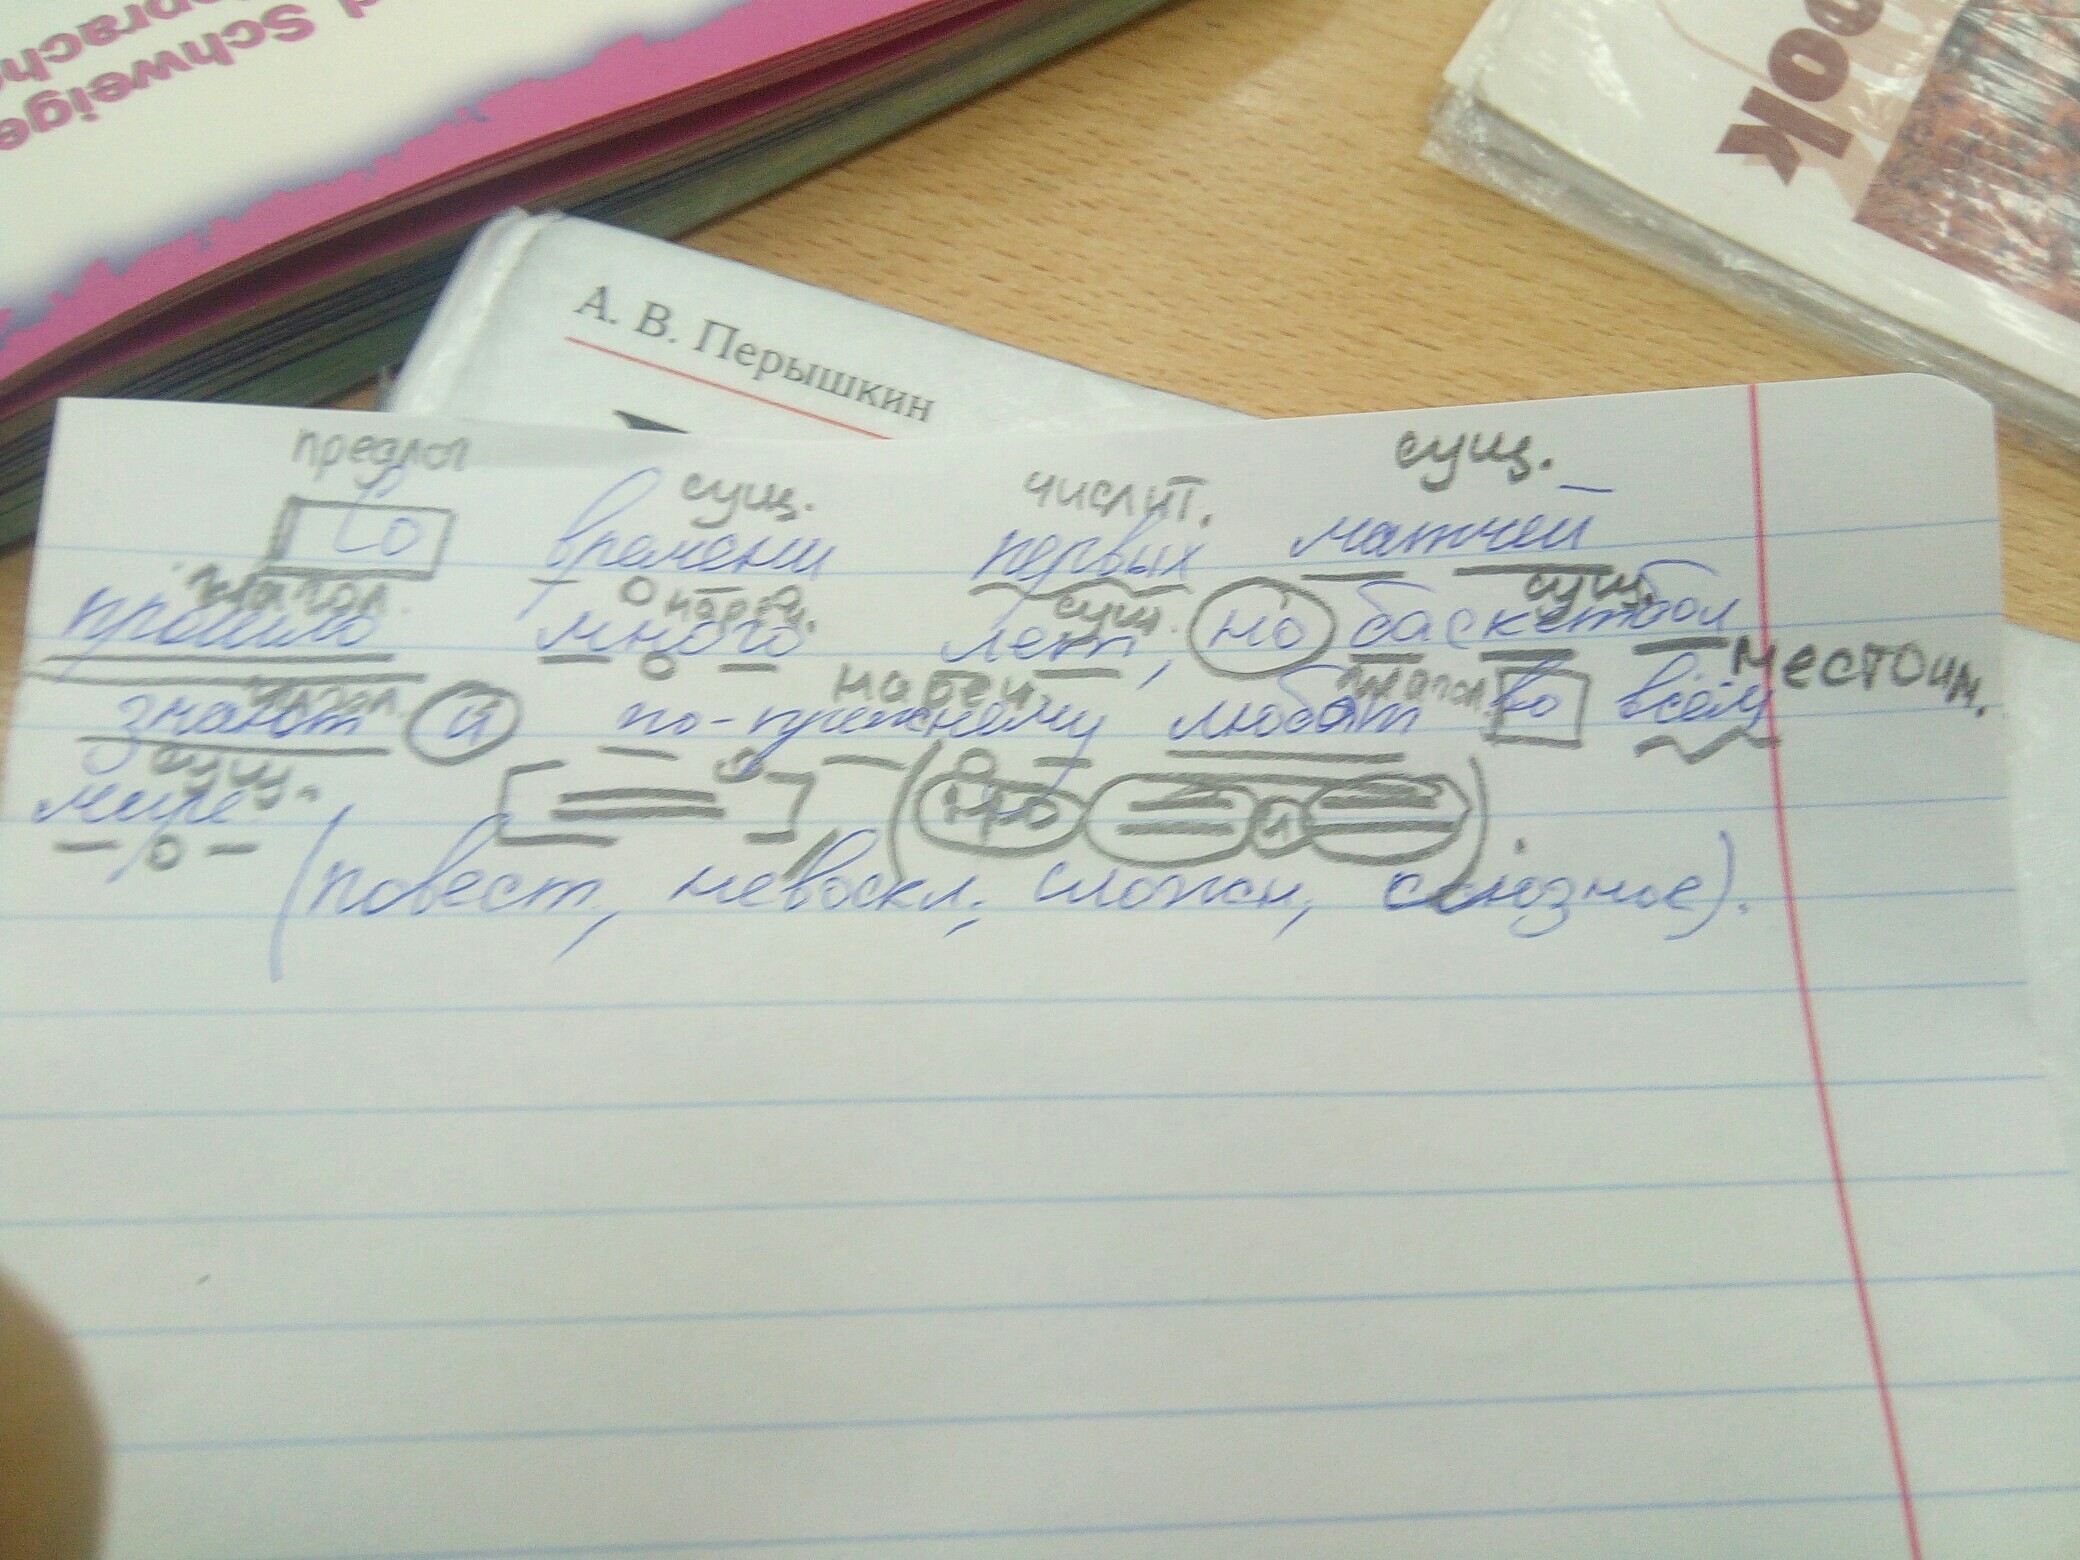 d Schweige
sprache
ook
А. В. Перышкин
предлог сущ. числит. сущ.
Со времени первых матчей
глагол. нареч. сущ. сущ.
прошло много лет, но баскетбол
глагол. нареч. глагол. местоим.
знают и по-прежнему любят во всём
сущ.
мире. [ ], (но и ).
(повест, невоскл, сложн, союзное).